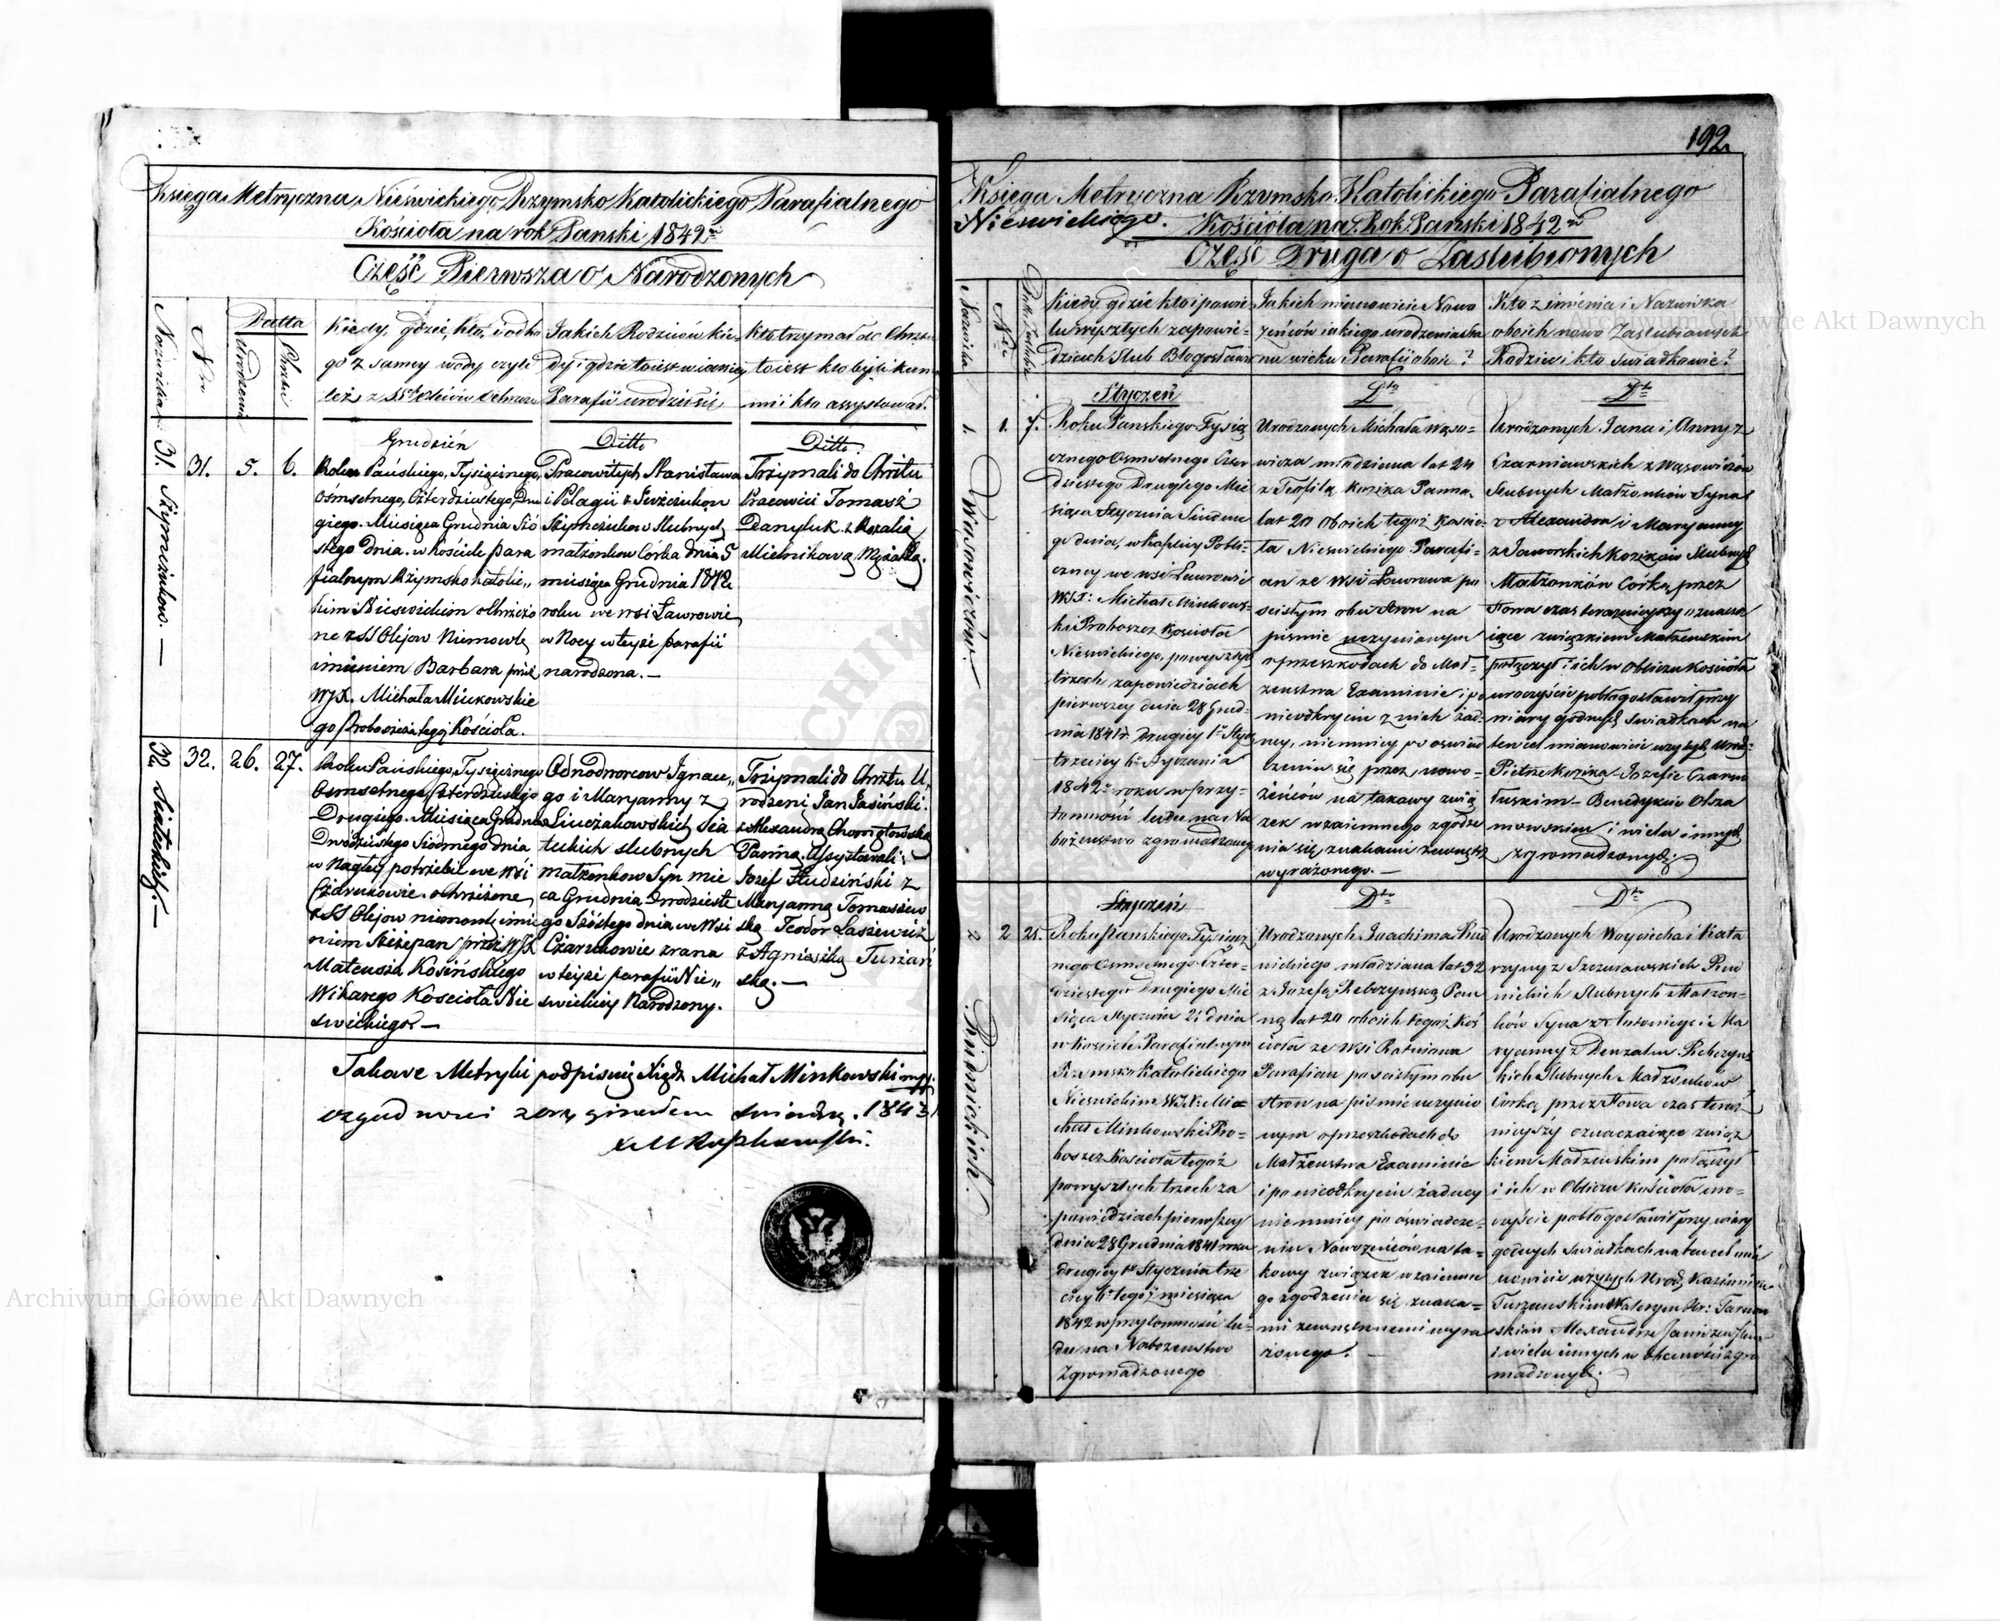 Księga Metryczna Nieświckiego Rzymsko Katolickiego Parafialnego
Kościoła na rok Pański 1842
Część Pierwsza o Narodzonych
Nazwiska
Datta
urodzenia
Chrztu
Kiedy, gdzie, kto, i od ko
go z samey wody czyli
też z SS Olejów
Jakich Rodziców kie
dy i gdzie to iest w iakiey
Parafii urodził się
Kto trzymał do Chrztu
to iest kto byli kum
mi i kto assystował.
31. Szymczuków. —
31.
5.
6.
Grudzień
Roku Pańskiego, Tysiącznego,
Ośmsetnego, Czterdziestego, Dru
giego. Miesiąca Grudnia Szó
stego Dnia. w Kościele Para
fialnym Rzymsko Katolic„
kim Nieswickim ochrzczo
ne z SS Olejow Niemowle
imieniem Barbara przez
WJX. Michała Minkowskie
go Proboszcza tegoż Kościoła.
Ditto
Pracowitych Stanisława
i Pelagii z
Szymczukow Slubnych
małżonkow Córka dnia 5
miesiąca Grudnia 1842
roku we wsi Ławrowie
w Nocy w teyże parafii
narodzona. —
Ditto
Trzymali do Chrztu
Pracowici Tomasz
Danyluk z Rozalią
Mielnikową Mężatką.
32. Siateckich. —
32.
26.
27.
Roku Pańskiego, Tysiącznego
Osmsetnego, Czterdziestego
Drugiego. Miesiąca Grudnia
Dwódziestego Siódmego dnia
w Nagłey potrzebie we Wsi
Czarukowie. ochrzczone
z SS Olejow niemowle imie
niem Szczepan przez WJX
Mateusza Kosińskiego
Wikarego Kościoła Nie
swickiego. —
Odnodworcow Ignac„
go i Maryanny z
Liuczakowskich Sia
teckich slubnych
małżonkow Syn mie
ca Grudnia Dwodzieste
go Szóstego dnia we Wsi
Czarukowie z rana
w teyże parafii Nie„
swickiey Narodzony.
Trzymali do Chrztu U,
rodzeni Jan Jasiński
z Alexandrą
Panną. Assystowali:
Jozef Studziński z
Maryanną Tomaszew
ską Teodor Laszewicz
z Agnieszką Turzań
ską. —
Takowe Metryki podpisuię Xiądz Michał Minkowski mpp.
1843
192.
Księga Metryczna Rzymsko Katolickiego Parafialnego
Nieswickiego. Kościoła na Rok Pański 1842
Część Druga o Zaślubionych
Nazwiska
Kiedy, gdzie kto i po wie
lu wyszłych zapowie=
dziach Slub Błogosławił
Jakich mianowicie Nowo
żeńców iakiego urodzenia sta
nu wieku Parafii oboie?
Kto z imienia i Nazwiska
oboich nowo Zaslubionych
Rodzice i kto swiadkowie?
Wąsowiczów.
1.
1.
7.
Styczeń
Roku Pańskiego Tysią
cznego Osmsetnego Czter
dziestego Drugiego Mie
siąca Stycznia Siódme
go dnia, w kaplicy Publi=
czney we wsi Ławrowie
WJX: Michał Minkows=
ki Proboszcz Kościoła
Nieswickiego, po wyszłych
trzech zapowiedziach
pierwszey dnia 28 Grud=
nia 1841 r. Drugiey 1 Stycz
trzeciey 6 Stycznia
1842 roku w przy=
tomności ludu na Na
bożeństwo zgromadzonego
Dto
Urodzonych Michała Wąso=
wicza młodziana lat 24
z Teofilą Kozika Panną
lat 20 oboich tegoż Kościo=
ła Nieswickiego Parafi=
an ze Wsi Ławrowa po
scisłym obu stron na
piśmie uczynionym
o przeszkodach do Mał=
żeństwa Examinie i po
nieodkryciu z nich żad=
ney, niemniey po oswiad
czeniu się przez nowo=
żeńców na takowy zwią
zek wzaiemnego zgodze
nia się znakami zewnętrz
wyrażonego. —
Dto
Urodzonych Jana i Anny z
Czarniawskich z Wąsowiczów
Slubnych Małżonków Syna
z Alexandra i Maryanny
z Jaworskich Kozików Slubnych
Małżonków Córką, przez
słowa czas teraznieyszy oznacza
iące związkiem Małżeńskim
połączył i ich w Obliczu Kościoła
uroczyście pobłogosławił przy
wiary godnych swiadkach na
ten cel mianowicie wzywanych Urodz:
Pietrze Kozika Jozefie Czarno
łuskim — Benedykcie Olsza
mowskim i wielu innych
zgromadzonych.
Rudnickich.
2
2
21.
Styczeń
Roku Pańskiego Tysiącz
nego Osmsetnego Czter=
dziestego Drugiego Mie
siąca Stycznia 21 dnia
w kościele Parafialnym
Rzymsko Katolickiego
Nieswickim WJX Mic=
hał Minkowski Pro=
boszcz Kościoła tegoż
po wyszłych trzech za
powiedziach pierwszey
dnia 28 Grudnia 1841 roku
drugiey 1 Stycznia trze
ciey 6 tegoż miesiąca
1842 w przytomności lu=
du na Nabożeństwo
Zgromadzonego
Dto
Urodzonych Joachima Rud
nickiego młodziana lat 32
z Jozefą Rebczyńską Pan
ną lat 20 oboich tegoż Koś
cioła ze Wsi Ratniowa
Parafian po scisłym obu
stron na piśmie uczynio
nym o przeszkodach do
Małżeństwa Examinie
i po nieodkryciu żadney
niemniey po oświadcze=
niu Nowożeńców na ta=
kowy związek wzaiemne
go zgodzenia się znaka=
mi zewnętrznemi wyra
żonego.
Dto
Urodzonych Woyciecha i Kata
rzyny z Szczurowskich Rud
nickich Slubnych Małżon=
ków Syna z Antoniego i Ma
ryanny z Rebczyńs
kich Slubnych Małżonków
Córką przez Słowa czas teraz
nieyszy oznaczaiące związ
kiem Małżeńskim połączył
i ich w Obliczu Kościoła uro=
czyście pobłogosławił przy wiary
godnych swiadkach na ten cel mia
nowicie wzywanych Urodz: Kazimierz
Turzańskim Waleryan
Alexandrze
i wielu innych w obecności zgro
madzonych.
Archiwum Główne Akt Dawnych
Archiwum Główne Akt Dawnych